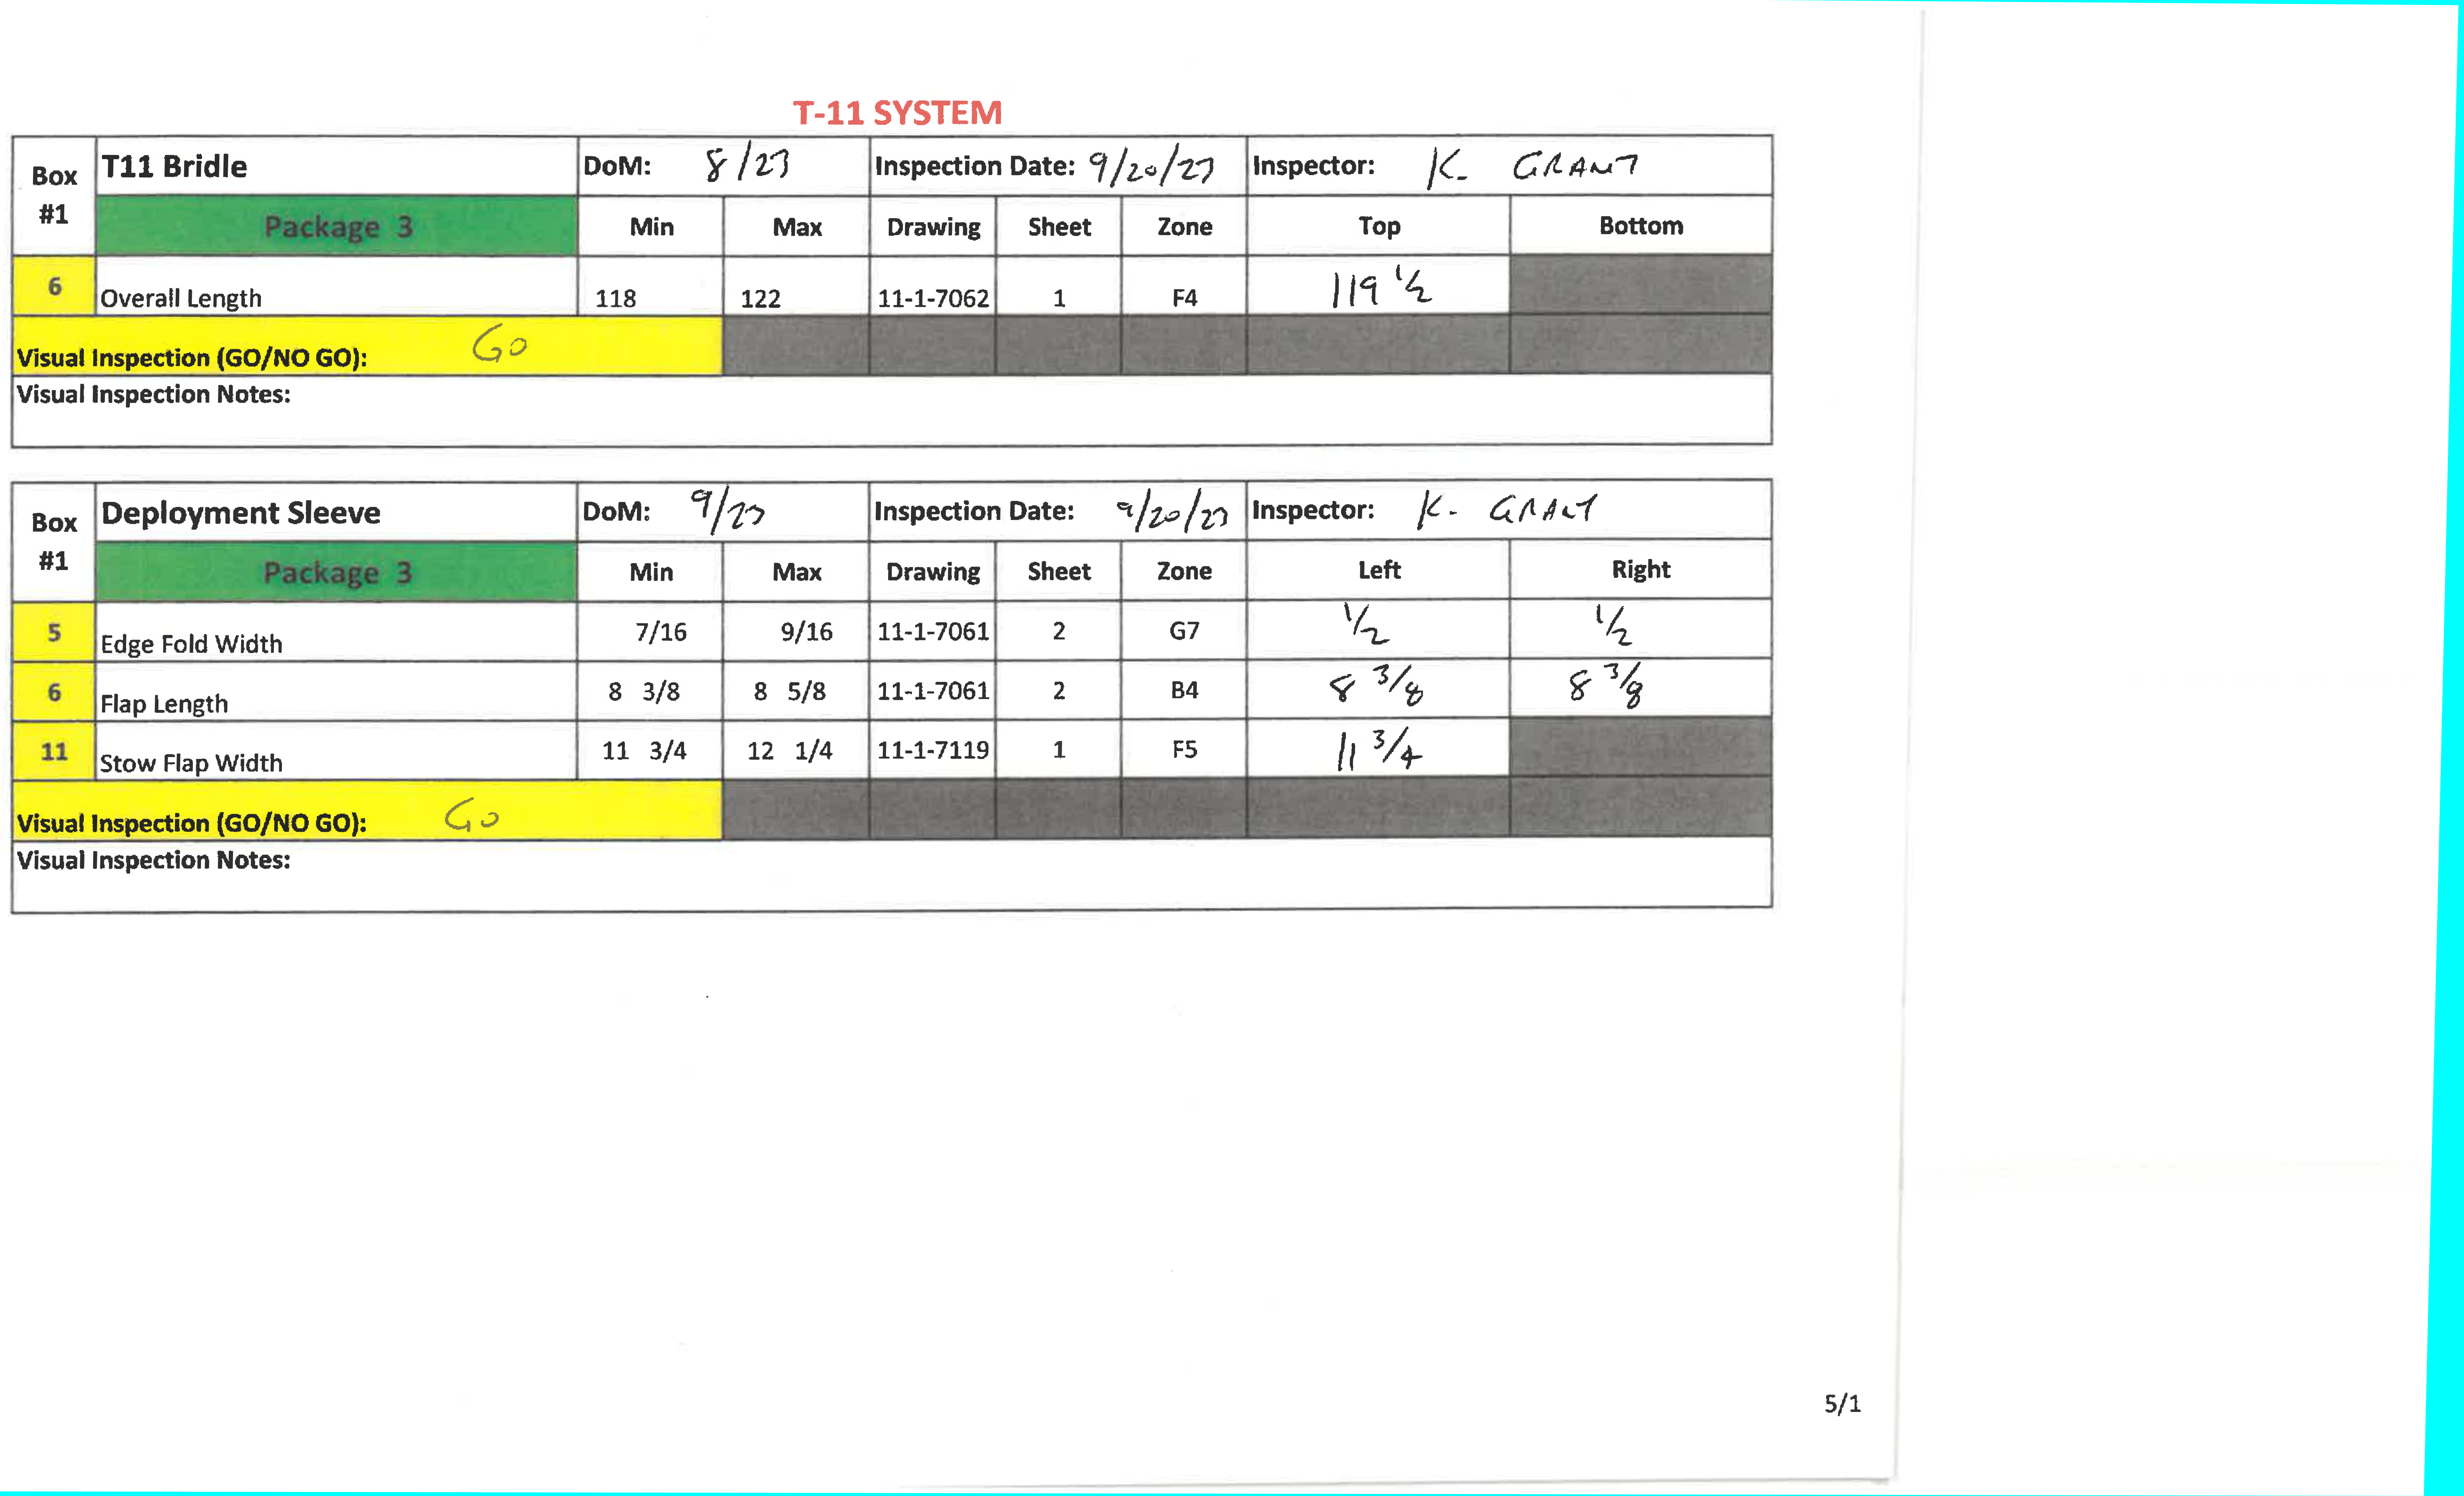 T-11 SYSTEM
Box #1 T11 Bridle DoM: 8/23 Inspection Date: 9/20/23 Inspector: K. GRANT
Package 3 Min Max Drawing Sheet Zone Top Bottom
6 Overall Length 118 122 11-1-7062 1 F4 119 1/2
Visual Inspection (GO/NO GO): GO
Visual Inspection Notes:
Box #1 Deployment Sleeve DoM: 9/23 Inspection Date: 9/20/23 Inspector: K. GRANT
Package 3 Min Max Drawing Sheet Zone Left Right
5 Edge Fold Width 7/16 9/16 11-1-7061 2 G7 1/2 1/2
6 Flap Length 8 3/8 8 5/8 11-1-7061 2 B4 8 3/8 8 3/8
11 Stow Flap Width 11 3/4 12 1/4 11-1-7119 1 F5 11 3/4
Visual Inspection (GO/NO GO): GO
Visual Inspection Notes:
5/1